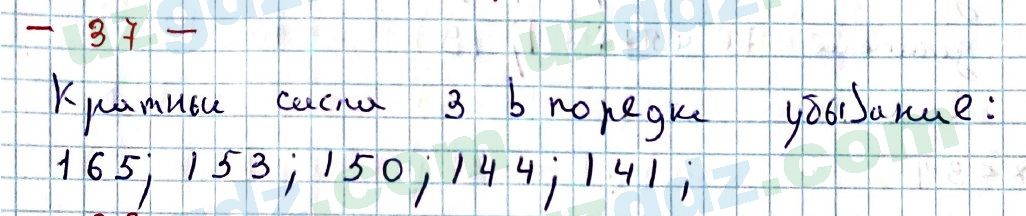 - 37 -
Кратные числа 3 в порядке убывание:
165; 153; 150; 144; 141;